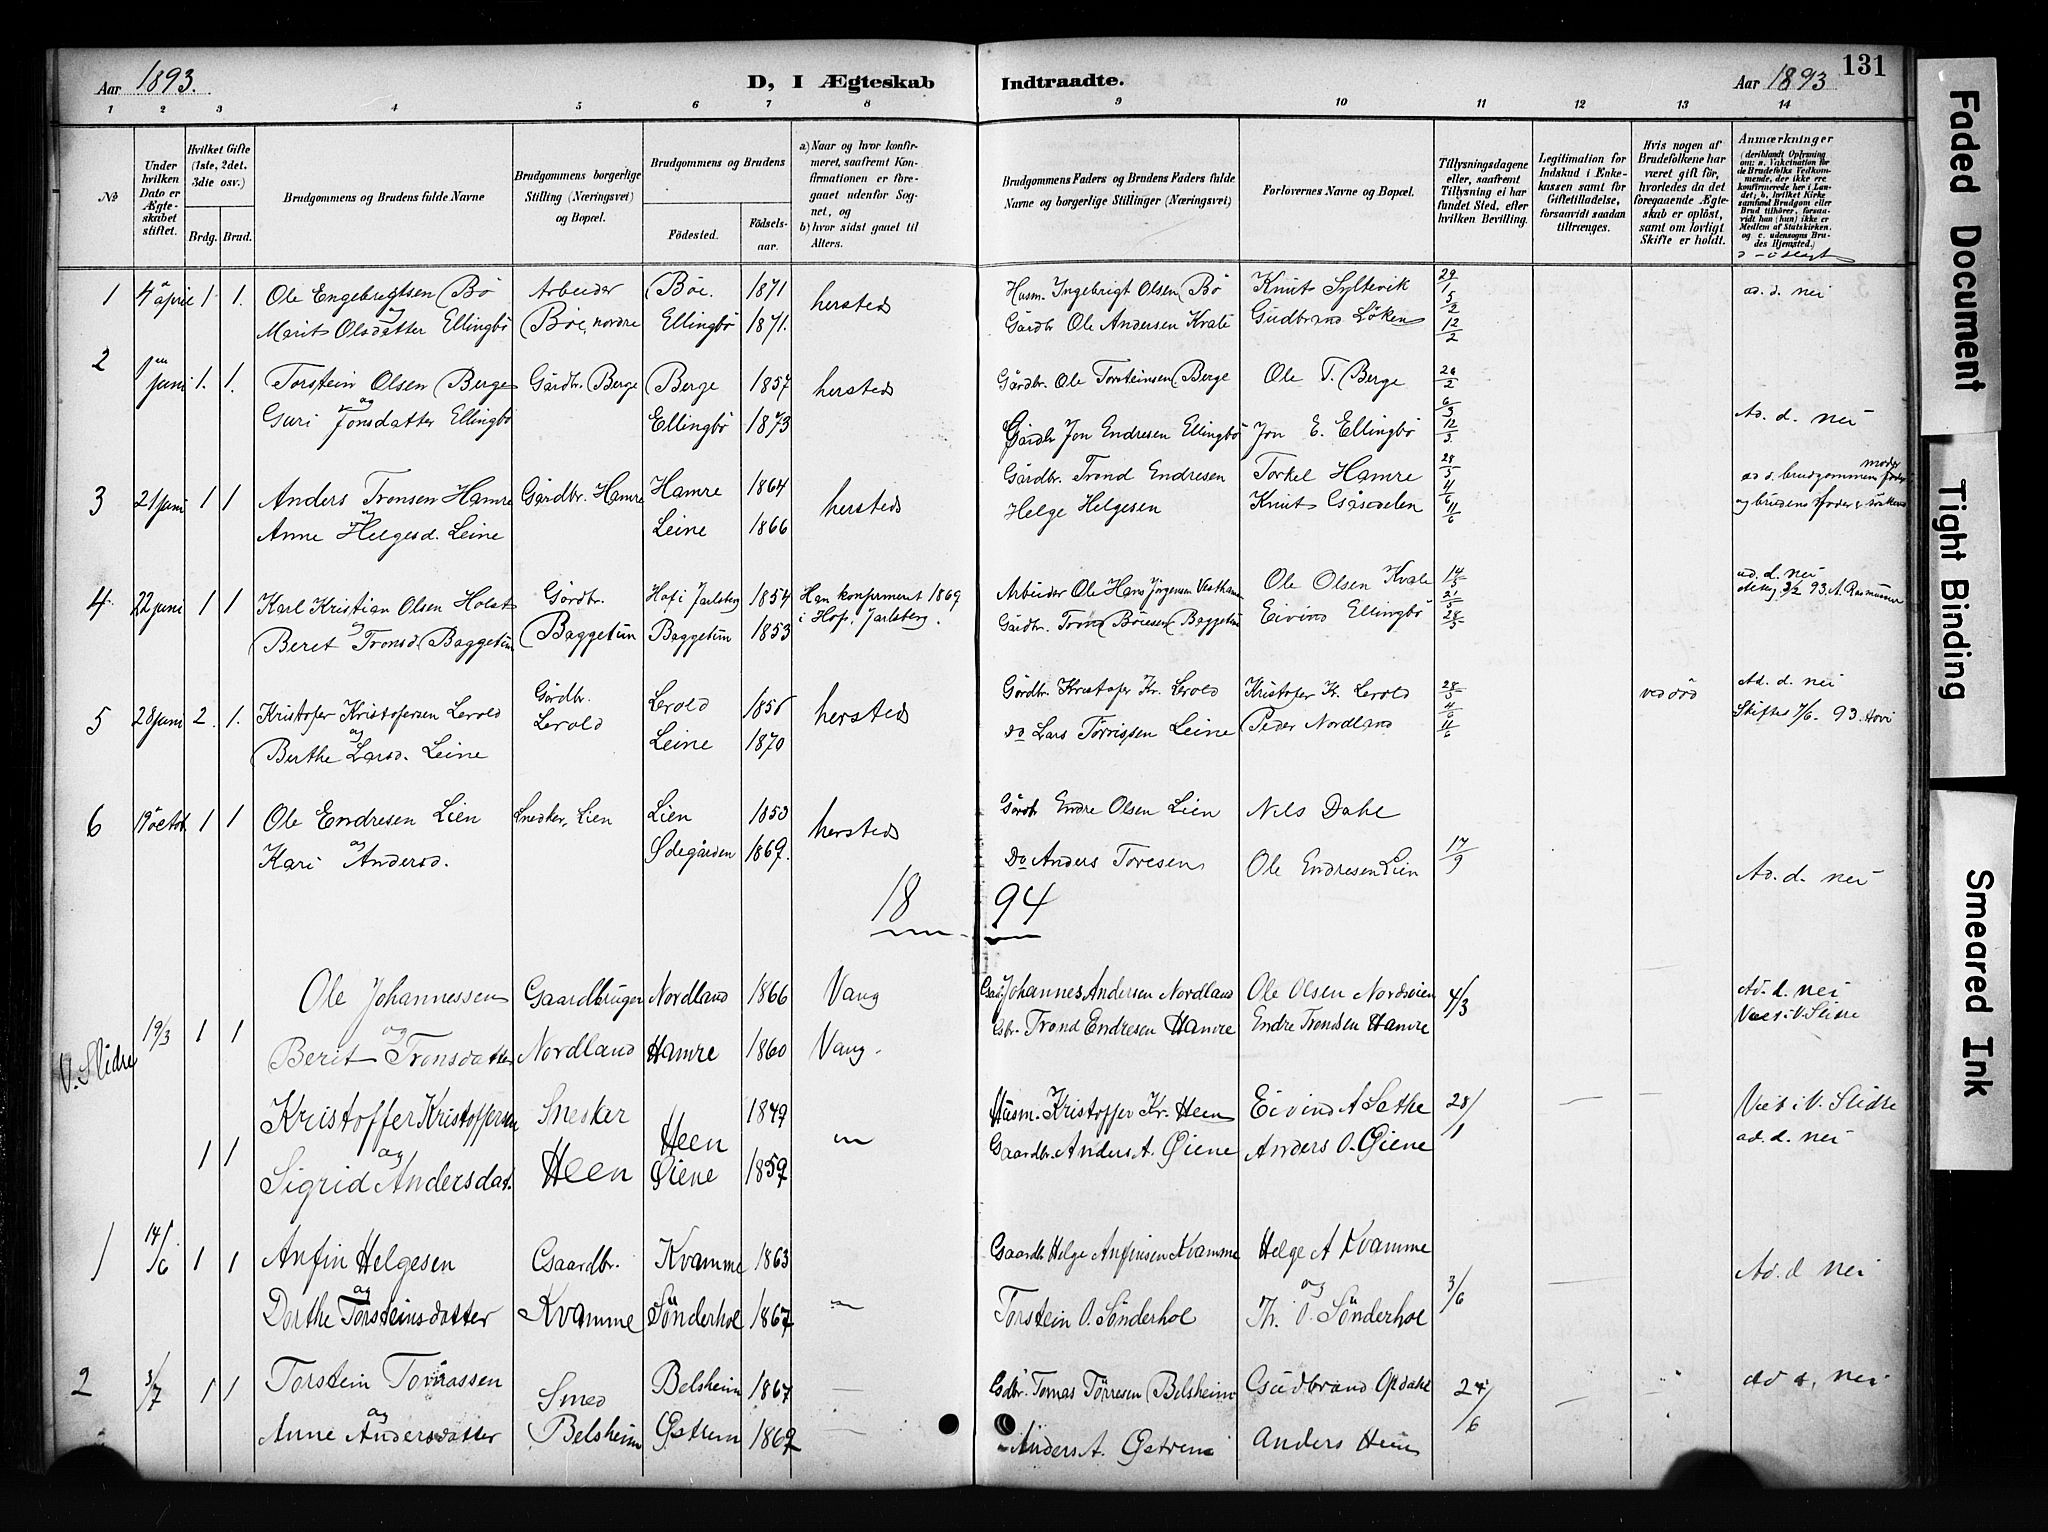 131
Aar 1893.
D, I Ægteskab Indtraadte.
Aar 1893
1 2 3 4 5 6 7 8 9 10 11 12 13 14
No
Under hvilken Dato er Ægteskabet stiftet.
Hvilket Gifte (1ste, 2det. 3die osv.)
Brdg. Brud.
Brudgommens og Brudens fulde Navne
Brudgommens borgerlige Stilling (Næringsvei) og Bopæl.
Brudgommens og Brudens
Födested.
Födselsaar.
a) Naar og hvor konfirmeret, saafremt Konfirmationen er foregaaet udenfor Sognet, og
b) hvor sidst gaaet til Alters.
Brudgommens Faders og Brudens Faders fulde Navne og borgerlige Stillinger (Næringsvei)
Forlovernes Navne og Bopæl.
Tillysningsdagene eller, saafremt Tillysning ei har fundet Sted, efter hvilken Bevilling.
Legitimation for Indskud i Enkekassen samt for Giftetilladelse, forsaavidt saadan tiltrænges.
Hvis nogen af Brudefolkene har været gift før, hvorledes da det foregaaende Ægteskab er oplöst, samt om lovligt Skifte er holdt.
Anmærkninger
(deriblandt Oplysning om: a. Vakcination for de Brudefolks Vedkommende, der ikke er konfirmerede her i Landet; b. hvilket Kirkesamfund Brudgom eller Brud tilhörer, forsaavidt han (hun) ikke er Medlem af Statskirken, og c. udensogns Brudes Hjemsted.)
1 4 april 1 1. Ole Engebrigtsen Bö Arbeider Böe. 1871 hersteds Husm. Ingebrigt Olsen Bö Knut Syltevik 29/1 5/2 12/2 ad. d. nei
og
Marit Olsdatter Ellingbö Böe, nordre Ellingbö 1871. Gårdbr Ole Andersen Kvale Gudbrand Löken
2 1 juni 1. 1. Torstein Olsen Berge Gårdbr. Berge Berge 1857 hersteds Gårdbr. Ole Torsteinsen Berge Ole T. Berge 26/2
og
Guri Jonsdatter Ellingbö Ellingbö 1873 Gårdbr Jon Endresen Ellingbö Jon E. Ellingbö 12/3 Ad. d. nei
3 21 juni 1 1 Anders Tronsen Hamre Gårdbr. Hamre Hamre 1864 hersteds Gårdbr. Trond Endresen Torkel Hamre 28/5 4/6 11/6 ad d. brudgommens moder
og
Anne Helgesd. Leine Leine 1866 Helge Helgesen Knut og brudens
4. 22 juni 1 1 Karl Kristian Olsen Holst Gårdbr. Hof i Jarlsberg 1854 Han konfirmeret 1869 Arbeider Ole Hans Jörgensen Ole Olsen Kvale 14/5 21/5 28/5 ad. d. nei
og
Beret Tronsd. Baggetun Baggetun Baggetun 1853 i Hof, Jarlsberg. Gårdbr. Trond Böiesen Baggetun Eivind Ellingbö
5 28 juni 2. 1. Kristofer Kristofersen Lerold Gårdbr. Lerold Lerold 1856 hersteds Gårdbr. Kristofer Kr. Lerold Kristofer Kr. Lerold 28/5 4/6 11/6 ved död Ad. d. nei
og
Berthe Larsd. Leine Leine 1870 Do Lars Torrissen Leine Peder Nordland Skifte 7/6 93
6 19 octob 1 1 Ole Endresen Lien Snedker, Lien Lien 1853 hersteds Gårdb Endre Olsen Lien Nils Dahl
og
Kari Andersd. Ødegården 1869. Do Anders Toresen Ole Endresen Lien 17/9 Ad. d. nei
18 94
V. Slidre 19/3 1 1 Ole Johannessen Gaardbruger Nordland 1866 Vang Johannes Andersen Nordland Ole Olsen Nordsveen 4/3 Ad. d. nei
og
Berit Tronsdatter Nordland Hamre 1860 Vang. Gbr. Trond Endresen Hamre Endre Trondsen Hamre Viet i V. Slidre
1 1 Kristoffer Kristoffersen Snedker Heen 1849 Husm. Kristoffer Kr. Heen Eivind A Sethe 28/1 Viet i V. Slidre
og
Sigrid Andersdat. Heen Øiene 1859 Gaardbr. Anders A. Øiene Anders O. Øiene ad. d. nei
1 14/6 1 1 Anfin Helgesen Gaardbr. Kvamme 1863 Gaardb Helge Anfinsen Kvamme Helge A Kvamme
og og
Dorthe Torsteinsdatter Kvamme Sönderhol 1867 Torstein O. Sönderhol Th. O. Sönderhol 3/6 Ad. d nei
2 3/7 1 1 Torstein Tomassen Smed Belsheim 1867 Gdbr. Tomas Törresen Belsheim Gudbrand Opdahl 24/6 Ad d, nei
og
Anne Andersdatter Belsheim Østrem 1869 Anders A. Østrem Anders Hem
Faded Document
Tight Binding
Smeared Ink